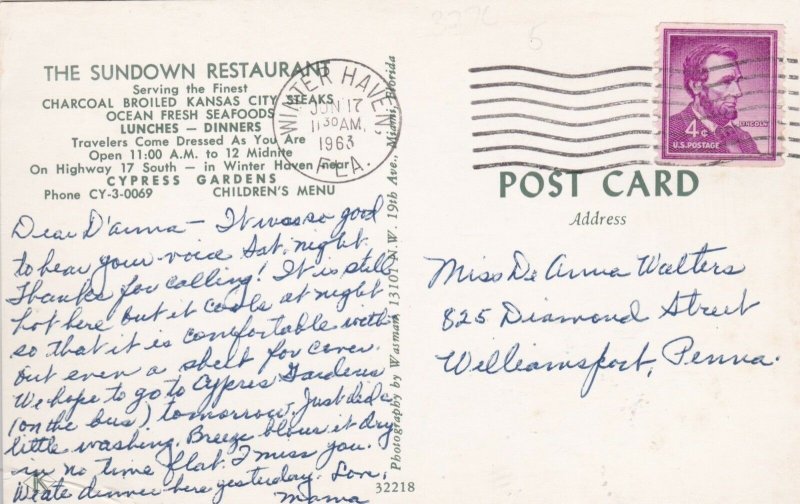 THE SUNDOWN RESTAURANT
Serving the Finest
CHARCOAL BROILED KANSAS CITY STEAKS
OCEAN FRESH SEAFOODS
LUNCHES — DINNERS
Travelers Come Dressed As You Are
Open 11:00 A.M. to 12 Midnite
On Highway 17 South — in Winter Haven near
CYPRESS GARDENS
Phone CY-3-0069 CHILDREN'S MENU
Dear D'anna — It was so good
to hear your voice Sat. night.
Thanks for calling! It is still
hot here but it cools at night
so that it is comfortable with-
out even a sheet for cover.
We hope to go to Cypress Gardens
(on the bus) tomorrow. Just did a
little washing. Breeze blows it dry
in no time flat. I miss you.
We ate dinner here yesterday. Lov,
Mama
Photography by Wasman 13101 N.W. 19th Ave., Miami, Florida
32218
WINTER HAVEN,
JUN 17
11 30 AM.
1963
FLA.
LINCOLN
4¢
U.S. POSTAGE
POST CARD
Address
Miss De Anna Walters
825 Diamond Street
Williamsport, Penna.
5